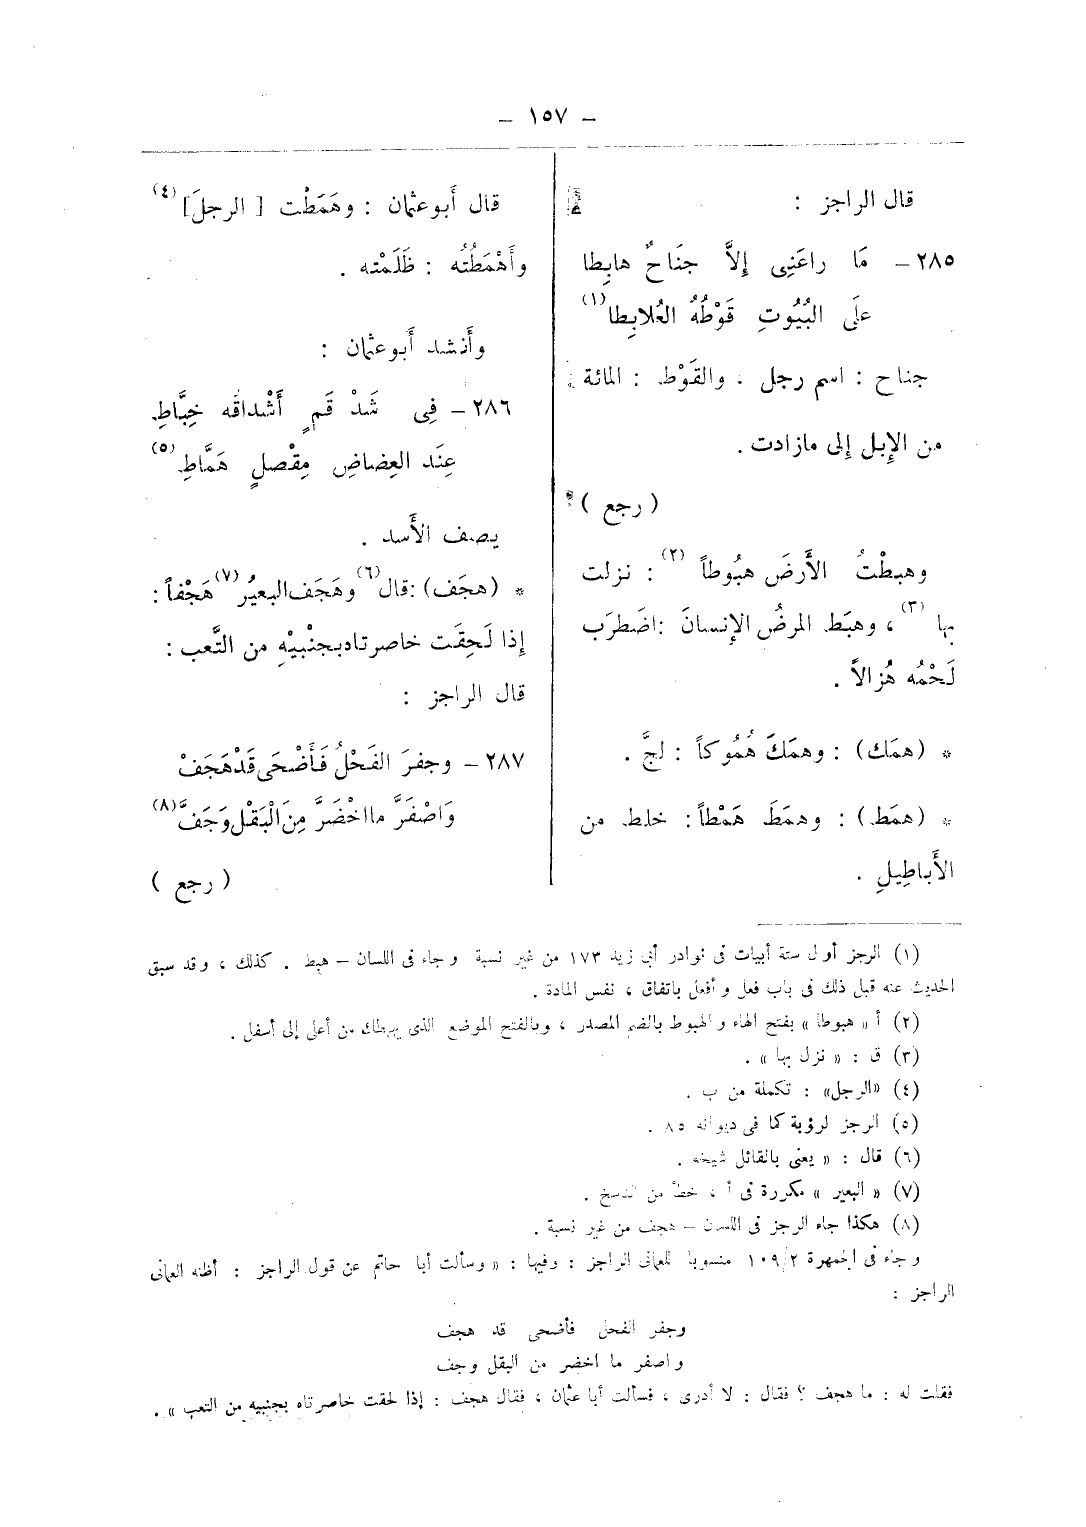 – ١٥٧ –
قال الراجز :
٢٨٥ – مَا راعَنِى إلاَّ جنَاحٌ هابِطا
علَى البُيُوتِ قَوْطُهُ العُلابِطا (١)
جناح : اسم رجل . والقَوْط : المائة
من الإِبل إلى مازادت .
( رجع )
وهبطْتُ الأَرضَ هبُوطاً (٢) : نزلت
بها (٣) ، وهبَط المرضُ الإِنسانَ : اضطرَب
لَحْمُه هُزالاً .
* (همَك) : وهمَكَ هُمُوكاً : لجَّ .
* (همَط) : وهمَطَ هَمْطاً : خلط من
الأَباطِيلِ .
قال أَبو عثمان : وهَمَطْت [ الرجلَ] (٤)
وأَهْمَطْتُه : ظَلَمْته .
وأَنشد أَبو عثمان :
٢٨٦ – فِى شَدْقَمٍ أَشْداقُه خِبَّاطِ
عِنَد العِضاضِ مِقْصلٍ هَمَّاطِ (٥)
يصف الأَسد .
* (هجَف) : قال (٦) وهَجَف البعيرُ (٧) هَجْفاً :
إذا لَحِقَت خاصرتاه بجنْبيْهِ من التَّعب :
قال الراجز :
٢٨٧ – وجفرَ الفَحْلُ فَأَضْحَى قَدْ هَجَفْ
وَاصْفَرَّ ما اخْضَرَّ مِنَ الْبَقْلِ وَجَفَّ (٨)
( رجع )
(١) الرجز أول ستة أبيات فى نوادر أبى زيد ١٧٣ من غير نسبة وجاء فى اللسان – هبط . كذلك ، وقد سبق
الحديث عنه قبل ذلك فى باب فعل وأفعل باتفاق ، نفس المادة .
(٢) أ « هبوطا » بفتح الهاء والهبوط بالضم المصدر ، وبالفتح الموضع الذى يهبطك من أعلى إلى أسفل .
(٣) ق : « نزل بها » .
(٤) «الرجل» : تكملة من ب .
(٥) الرجز لرؤبة كما فى ديوانه ٨٥ .
(٦) قال : « يعنى بالقائل شيخه .
(٧) « البعير » مكررة فى أ ، خطأ من النسخ .
(٨) هكذا جاء الرجز فى اللسان – هجف من غير نسبة .
وجاء فى الجمهرة ١٠٩/٢ منسوبا للعمانى الراجز : وفيها : « وسألت أبا حاتم عن قول الراجز : أظنه العمانى
الراجز :
وجفر الفحل فأضحى قد هجف
واصفر ما اخضر من البقل وجف
فقلت له : ما هجف ؟ فقال : لا أدرى ، فسألت أبا عثمان ، فقال هجف : إذا لحقت خاصرتاه بجنبيه من التعب » .